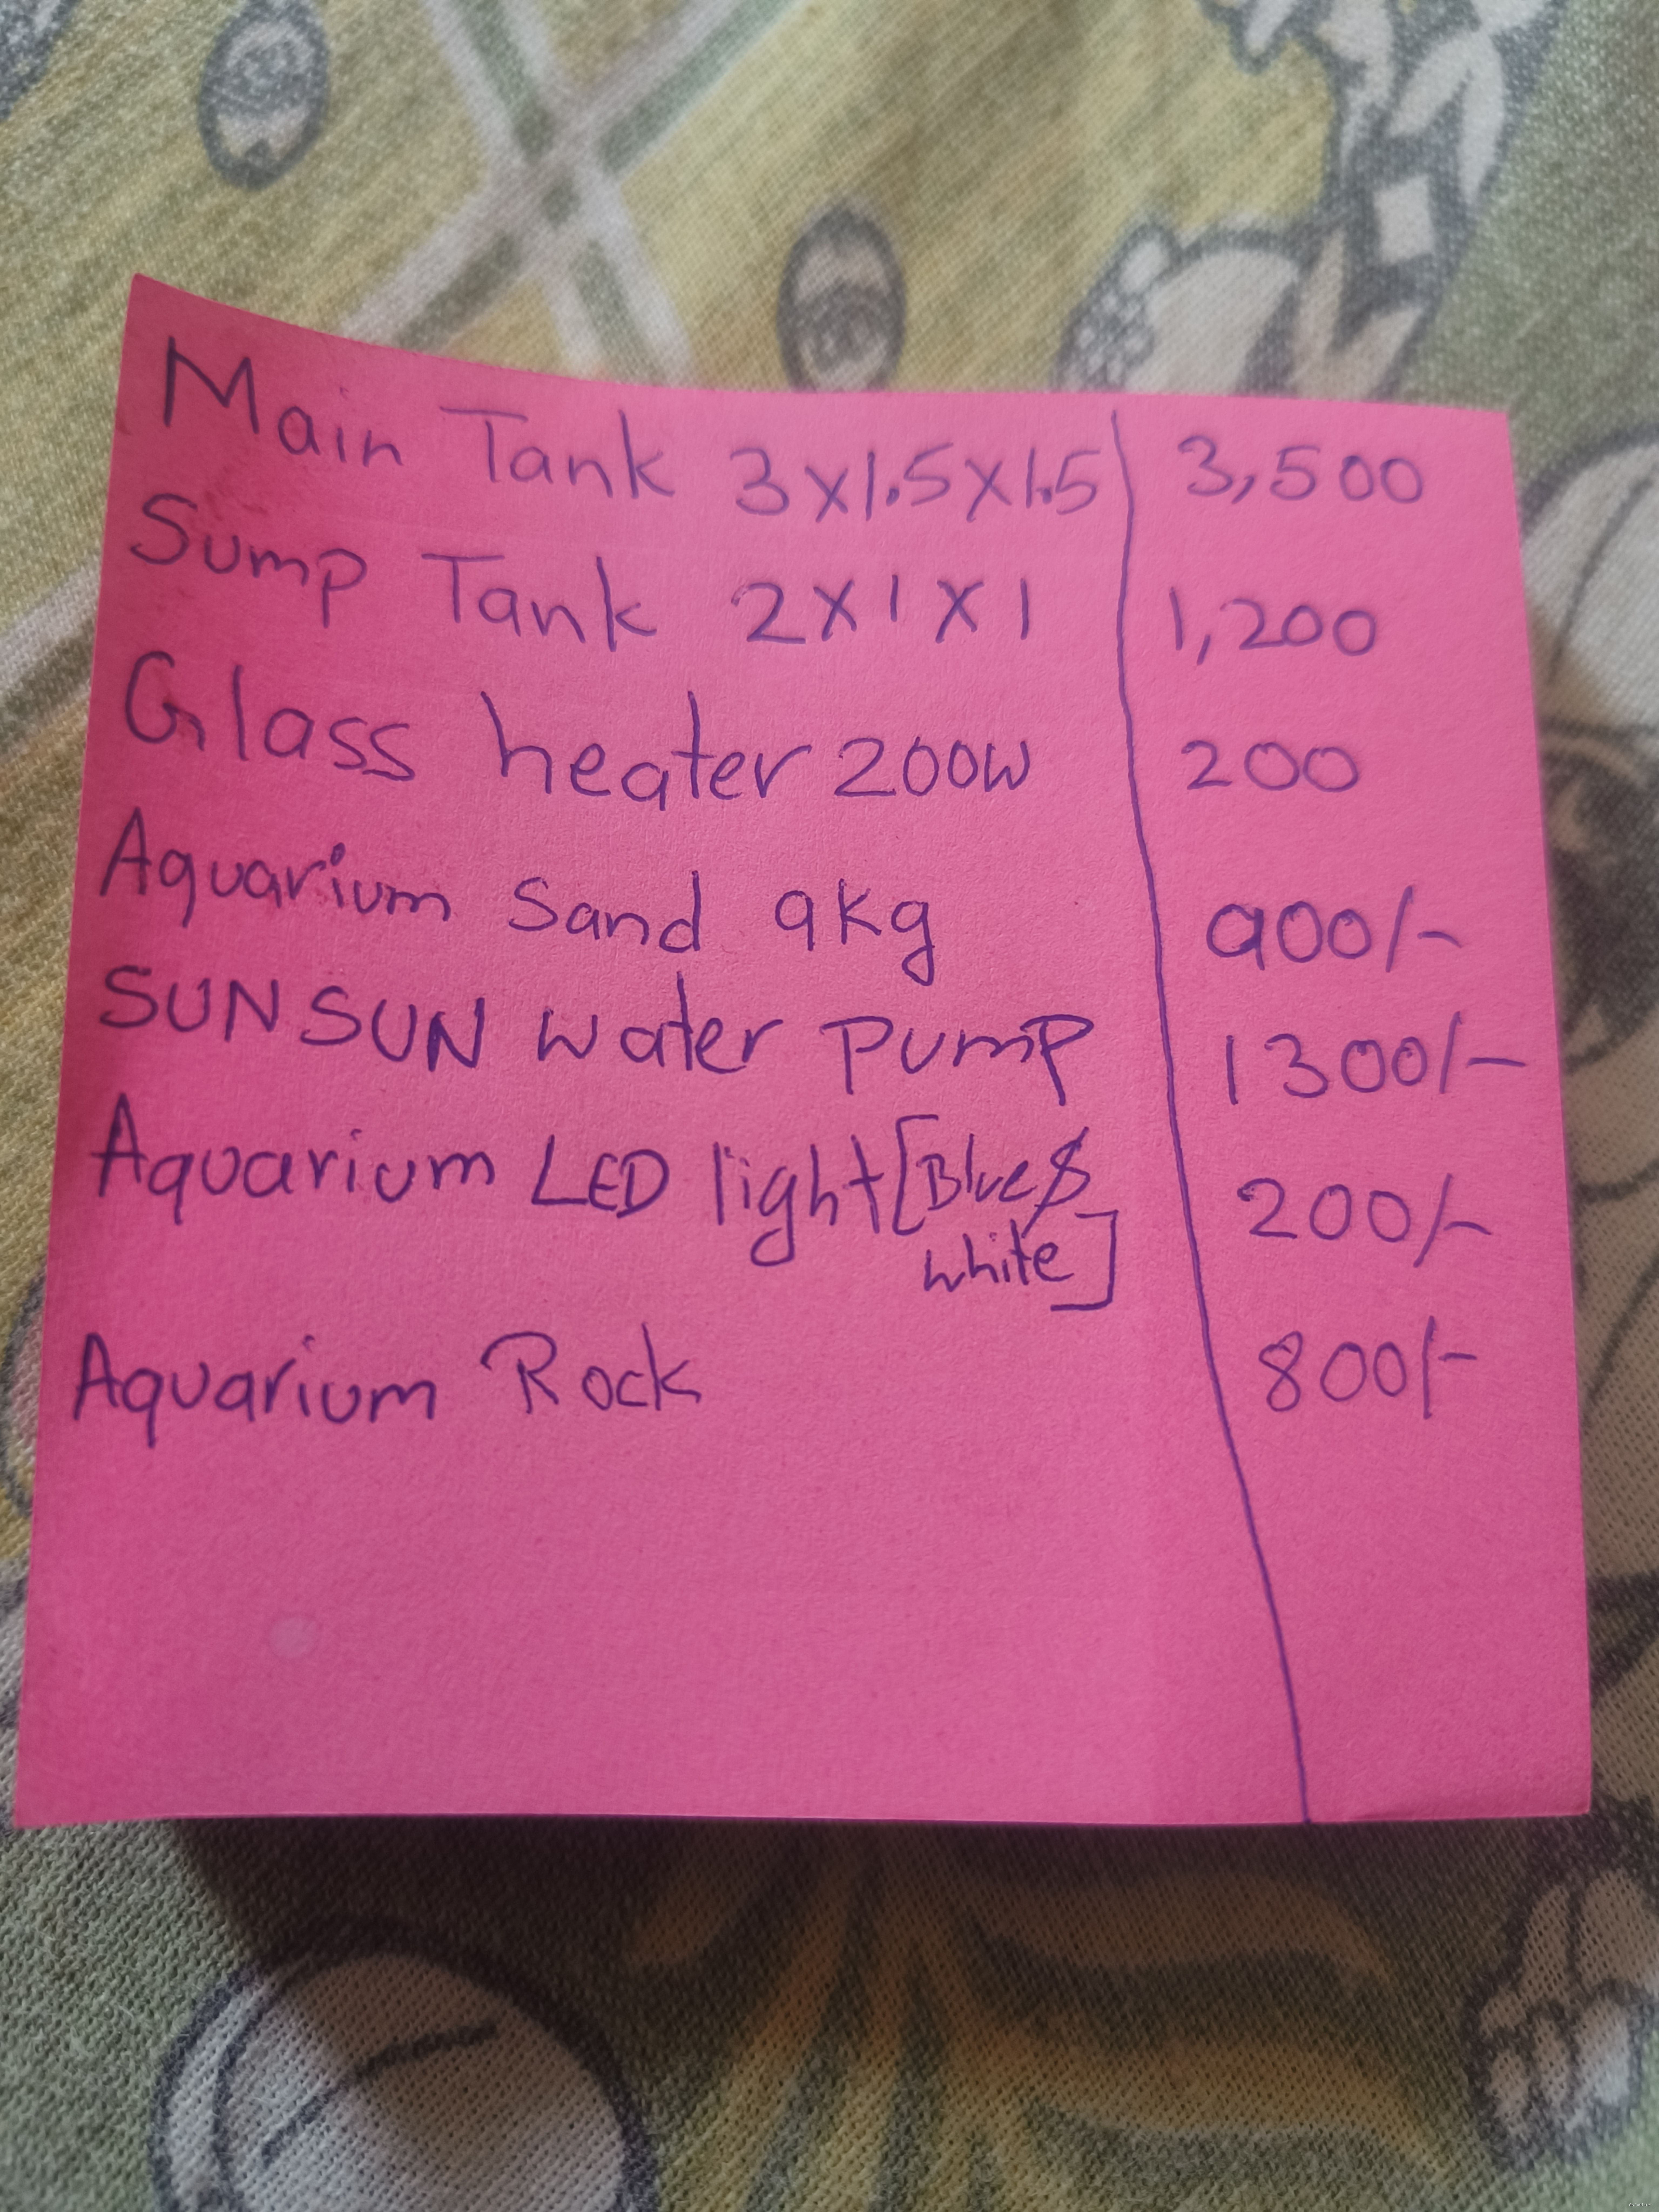 Main Tank 3x1.5x1.5 3,500
Sump Tank 2x1x1 1,200
Glass heater 200W 200
Aquarium Sand 9kg 900/-
SUNSUN water pump 1300/-
Aquarium LED light [Blue & 200/-
white]
Aquarium Rock 800/-